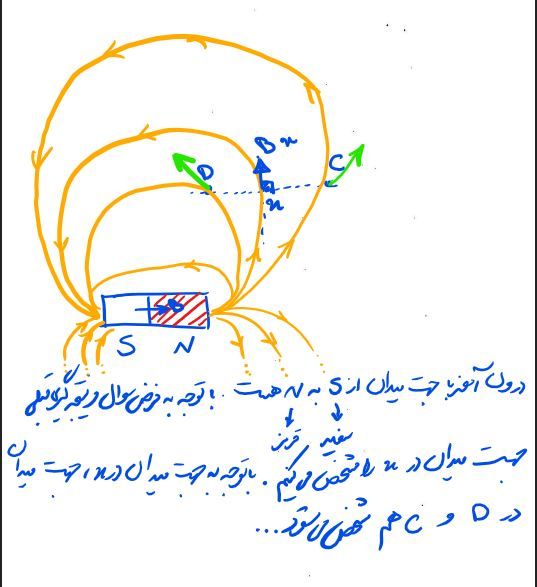 B x
D
C
x
S N
درون آهنربا جهت میدان از S به N هست. با توجه به فرض سوال و نتیجه گیری قبلی
سفید قرمز
جهت میدان در x را مشخص می‌کنیم. با توجه به جهت میدان در x، جهت میدان
در D و C هم مشخص می‌شود...